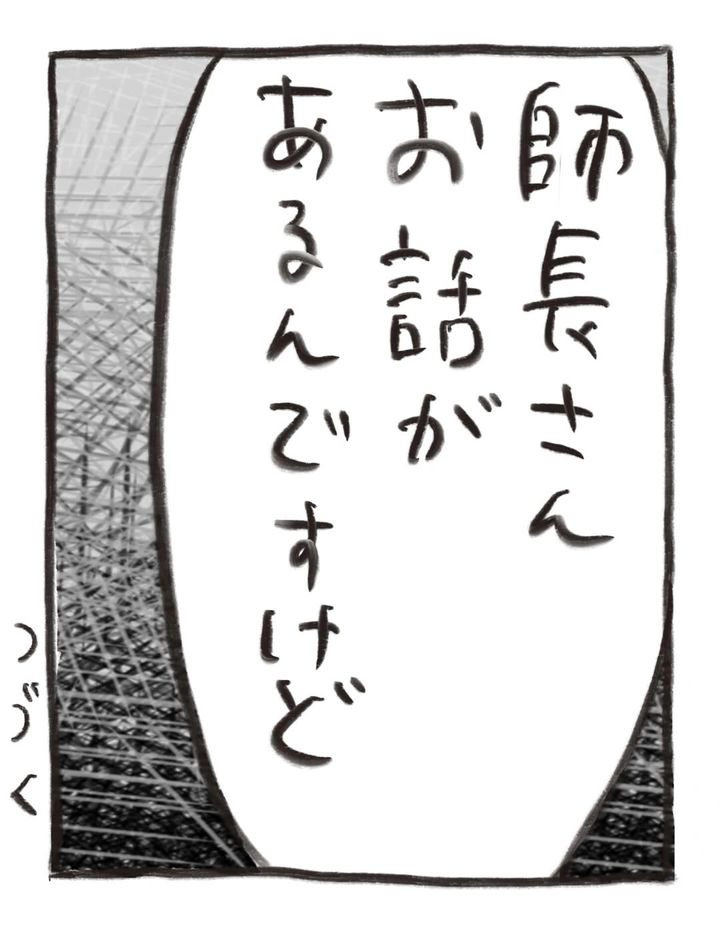 師長さん
お話が
あるんですけど
つづく